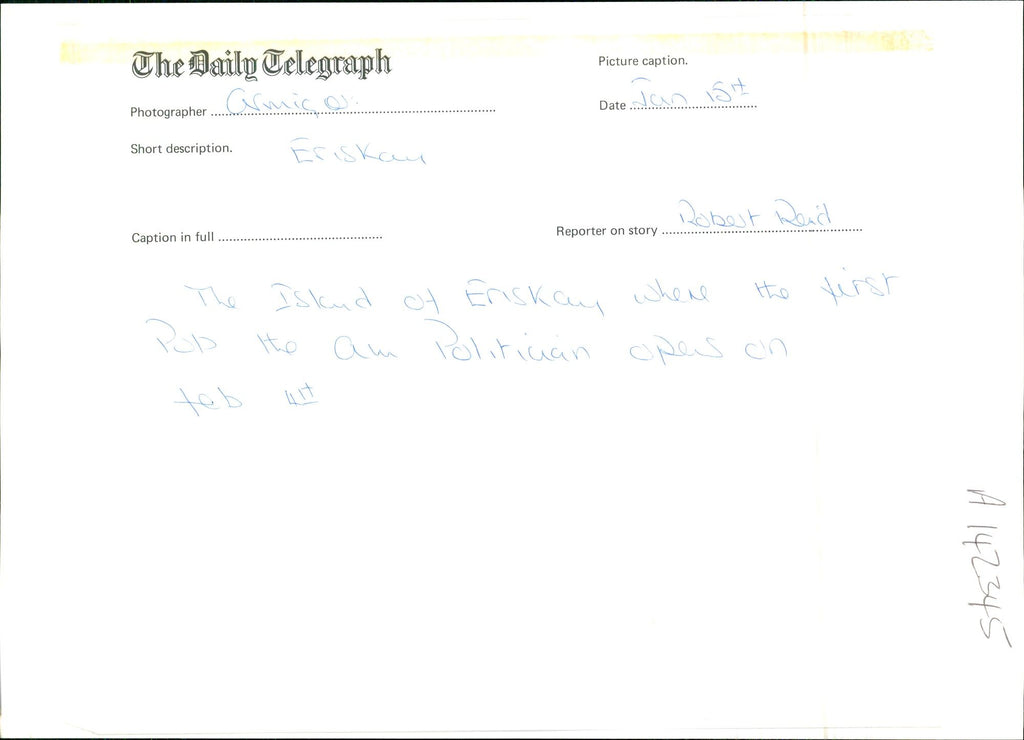 The Daily Telegraph
Picture caption.
Photographer Armiger.
Date Jan 15th
Short description. Eriskay
Caption in full
Reporter on story Robert Reid
The Island of Eriskay where the first
Pub the Am Politician opens on
feb 4th
A 14234S